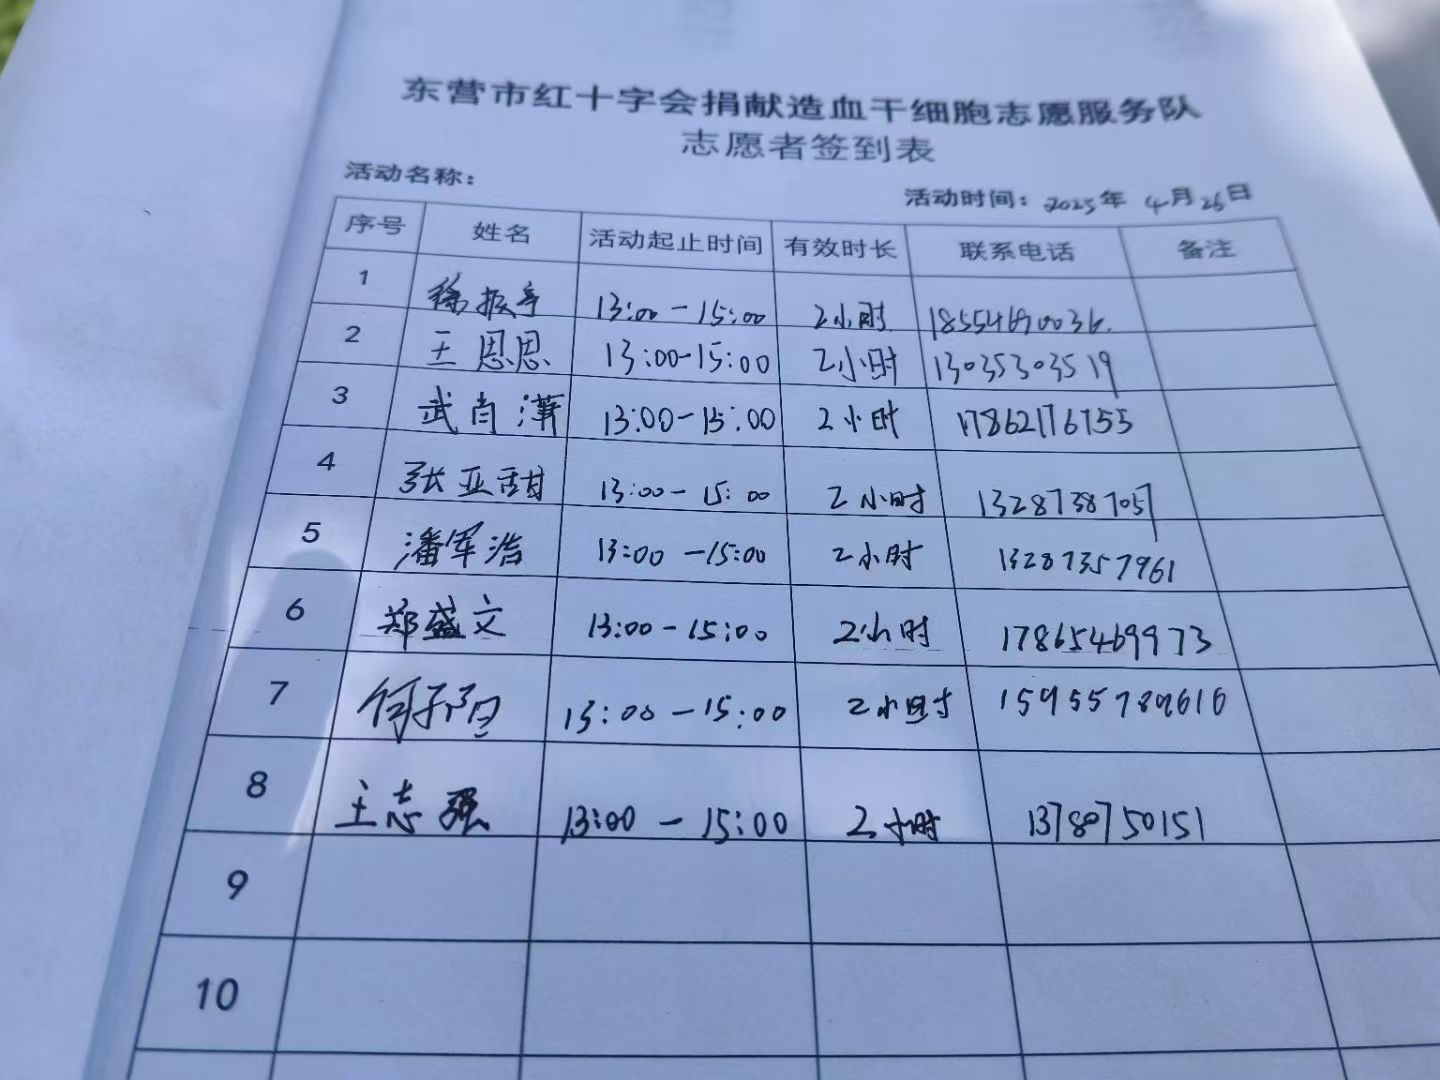 东营市红十字会捐献造血干细胞志愿服务队
志愿者签到表
活动名称： 活动时间：2025年 4月26日
序号 姓名 活动起止时间 有效时长 联系电话 备注
1 徐振亭 13:00-15:00 2小时 18554690036.
2 王恩思 13:00-15:00 2小时 13035303519
3 武肖潇 13:00-15:00 2小时 17862176755
4 张亚甜 13:00-15:00 2小时 13287387057
5 潘军浩 13:00-15:00 2小时 13287357961
6 郑盛文 13:00-15:00 2小时 17865469973
7 何子阳 13:00-15:00 2小时 15955789616
8 王志强 13:00-15:00 2小时 13780750151
9
10